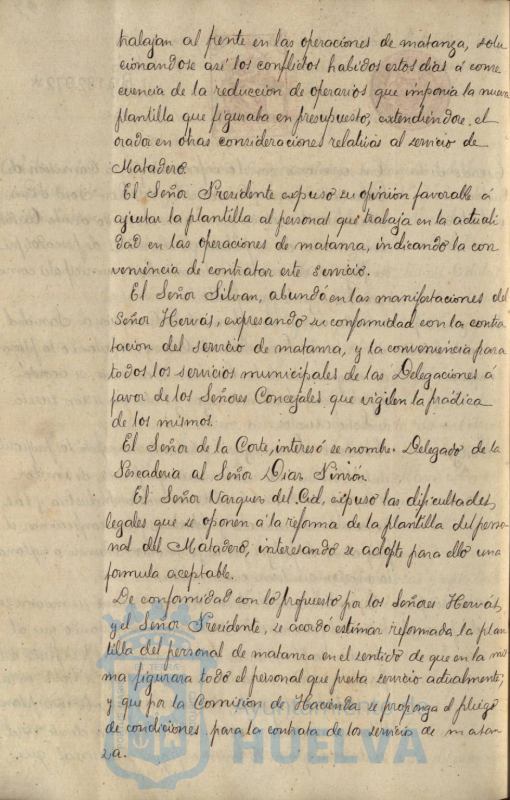 trabajan al frente en las operaciones de matanza, solu
cionandose asi los conflictos habidos estos dias á conse
cuencia de la reduccion de operarios que imponia la nueva
plantilla que figuraba en presupuesto, extendiéndose el
orador en otras consideraciones relativas al servicio de
Matadero.
El Señor Presidente expuso su opinión favorable á
ajustar la plantilla al personal que trabaja en la actuali
dad en las operaciones de matanza, indicando la con
veniencia de contratar este servicio.
El Señor Silvan, abundó en las manifestaciones del
Señor Hervás, expresando su conformidad con la contra
tacion del servicio de matanza, y la conveniencia para
todos los servicios municipales de las Delegaciones á
favor de los Señores Concejales que vigilen la práctica
de los mismos.
El Señor de la Corte, interesó se nombre Delegado de la
Pescaderia al Señor Diaz
El Señor Vazquez del Cid, expuso las dificultades
legales que se oponen á la reforma de la plantilla del perso
nal del Matadero, interesando se adopte para ello una
formula aceptable.
De conformidad con lo propuesto por los Señores Hervás,
y el Señor Presidente, se acordó estimar reformada la plan
tilla del personal de matanza en el sentido de que en la mis
ma figurara todo el personal que presta servicio actualmente;
y que por la Comisión de Hacienda se proponga el pliego
de condiciones para la contrata de los servicio de matan
za.
Ayuntamiento de
HUELVA